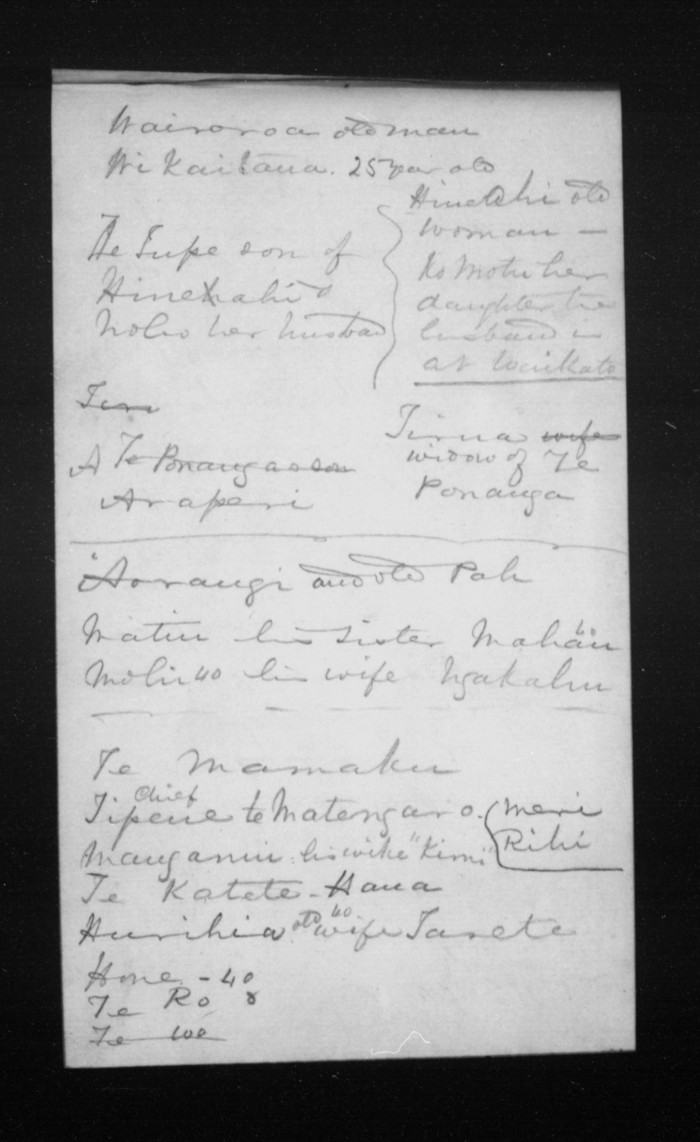 Wairoroa old man
Wi Kaitana. 25 year old
Te Tupe son of
Hine
Noho her husband
Hine
woman —
Ko Motu her
daughter the
husband is
at Waikato
Tiru
A Te Ponanga son
Araperi
Tirua wife
widow of Te
Ponanga
Aorangi and old Pah
Matiu his sister
Mohi 40 his wife Ngakahu
Te Mamaku
chief
Tipene te Matengaro.
Meri
Rihi
his wife "Kimi"
Te Katete - Hana
Hurihia old 40 wife Tarete
Hone - 40
Te Ro 8
Te we